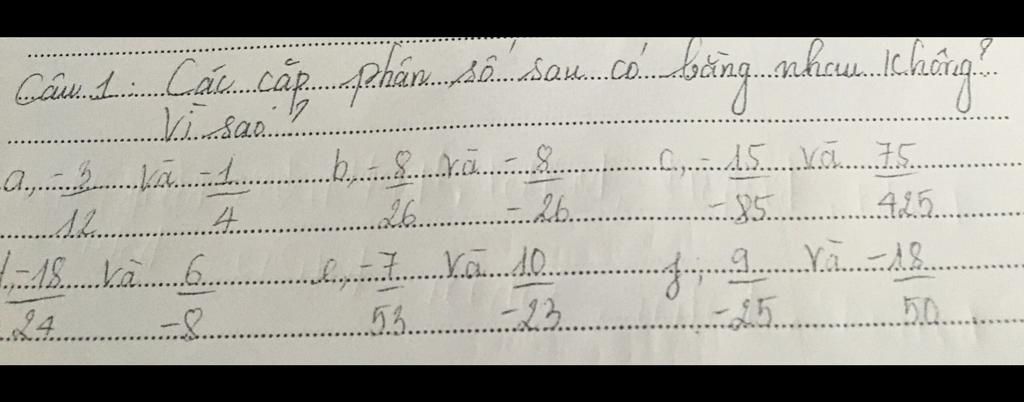 Câu 1: Các cặp phân số sau có bằng nhau không?
Vì sao?
a, -3/12 và -1/4 b, -8/26 và -8/-26 c, -15/-85 và 75/425
, -18/24 và 6/-8 e, -7/53 và 10/-23 f; 9/-25 và -18/50